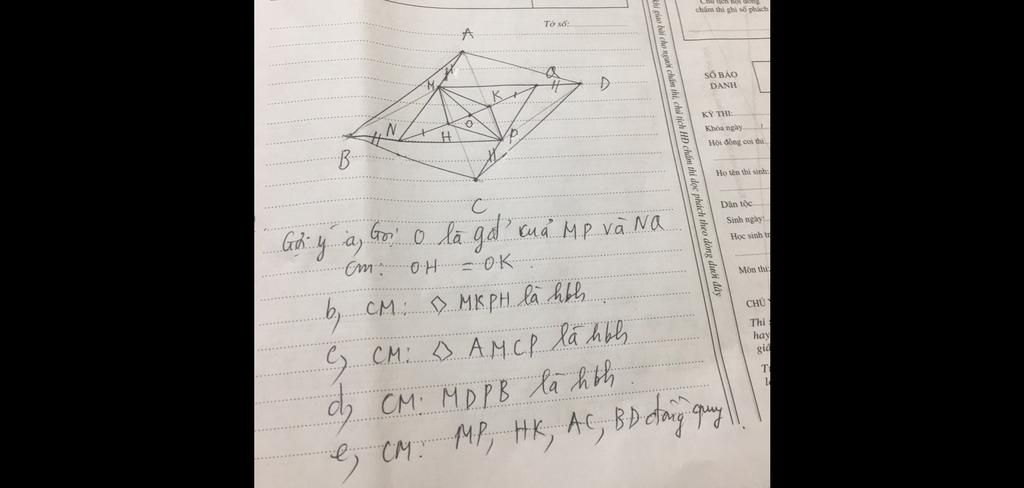 Tờ số:
chấm thi ghi số phách
khi giao bài cho người chấm thi, chủ tịch HĐ chấm thi dọc phách theo dòng dưới đây
SỐ BÁO
DANH
KỲ THI:
Khóa ngày
Hội đồng coi thi:
Họ tên thí sinh:
Dân tộc
Sinh ngày:
Học sinh tr
Môn thi:
CHÚ
Thí
hay
A
M
Q
D
K
N
O
H
P
B
C
Gợi ý a, Gọi O là gđ của MP và NQ
Cm: OH = OK.
b, CM: ◇ MKPH là hbh.
c, CM: ◇ AMCP là hbh
d, CM: MDPB là hbh.
e, CM: MP, HK, AC, BD đồng quy.